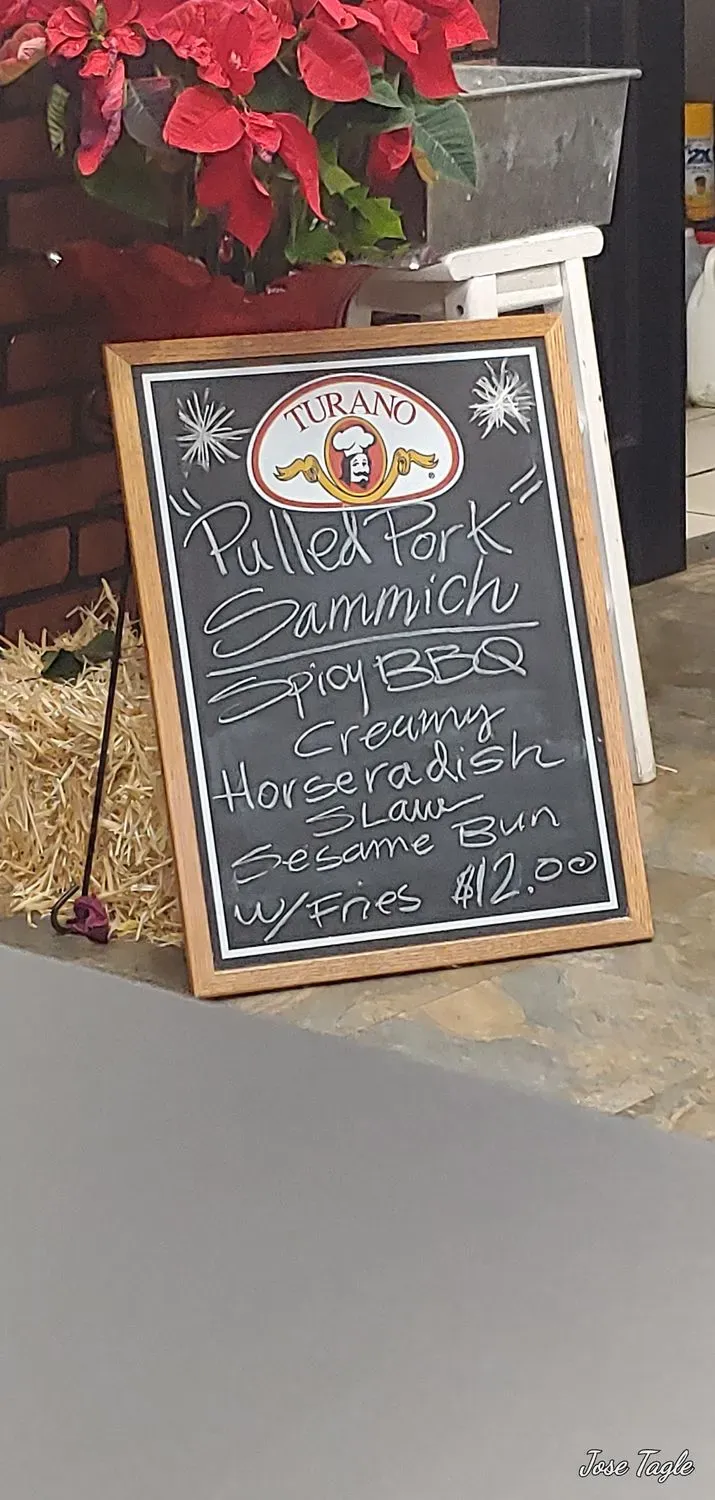 TURANO
®
"Pulled Pork"
Sammich
Spicy BBQ
Creamy
Horseradish
Slaw
Sesame Bun
w/Fries $12.00
2X
Jose Tagle